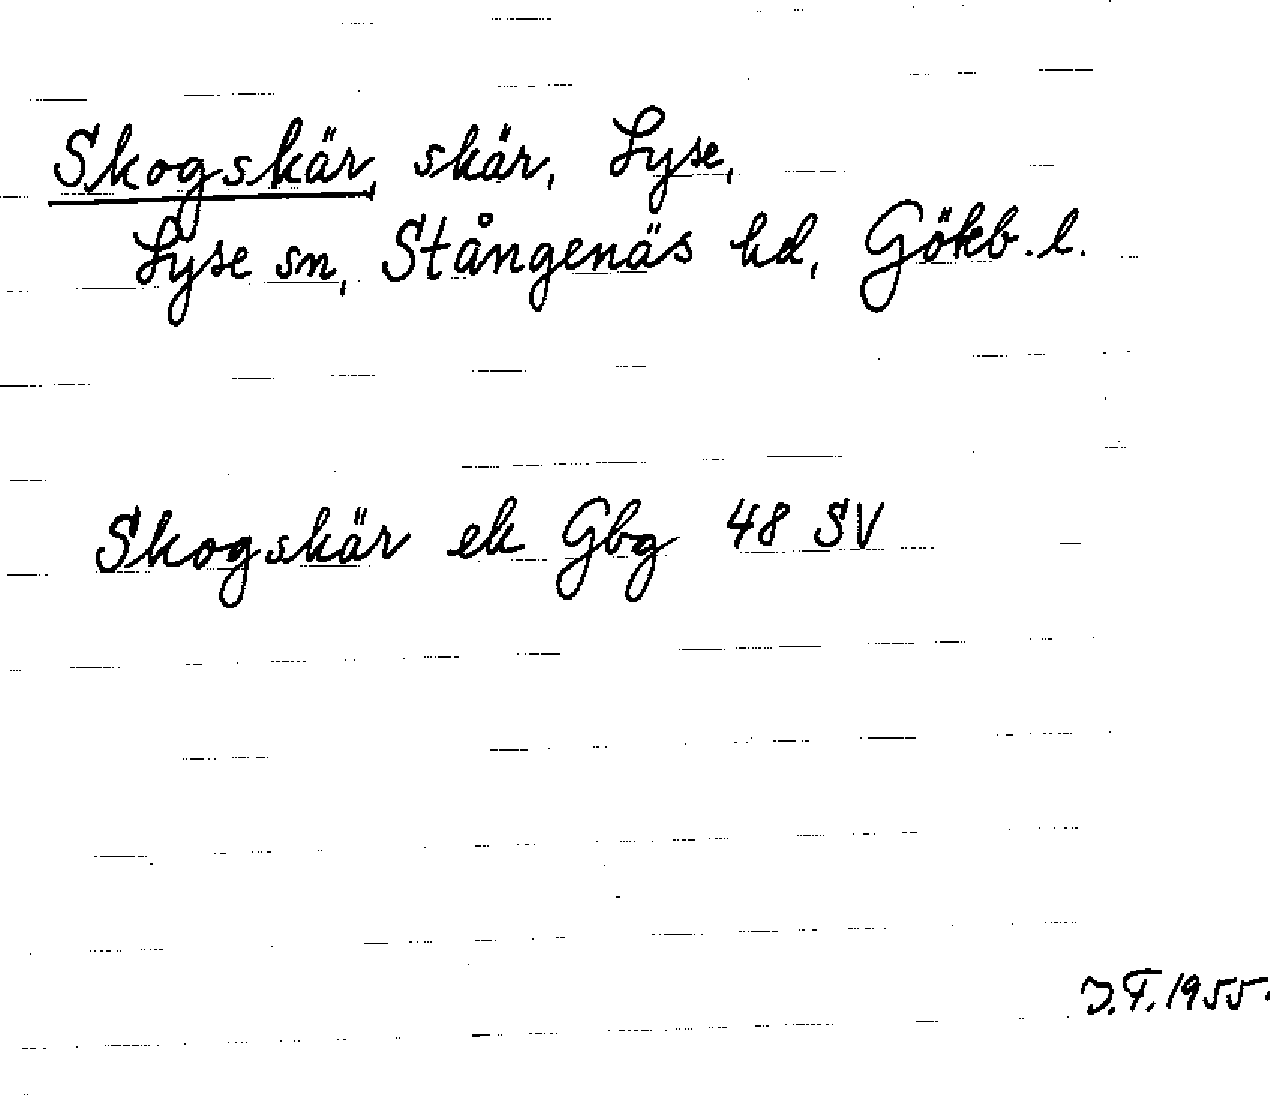 Skogskär, skär, Lyse,
Lyse sn, Stångenäs hd, Gökb. l.
Skogskär ek Gbg 48 SV
J.F. 1955.